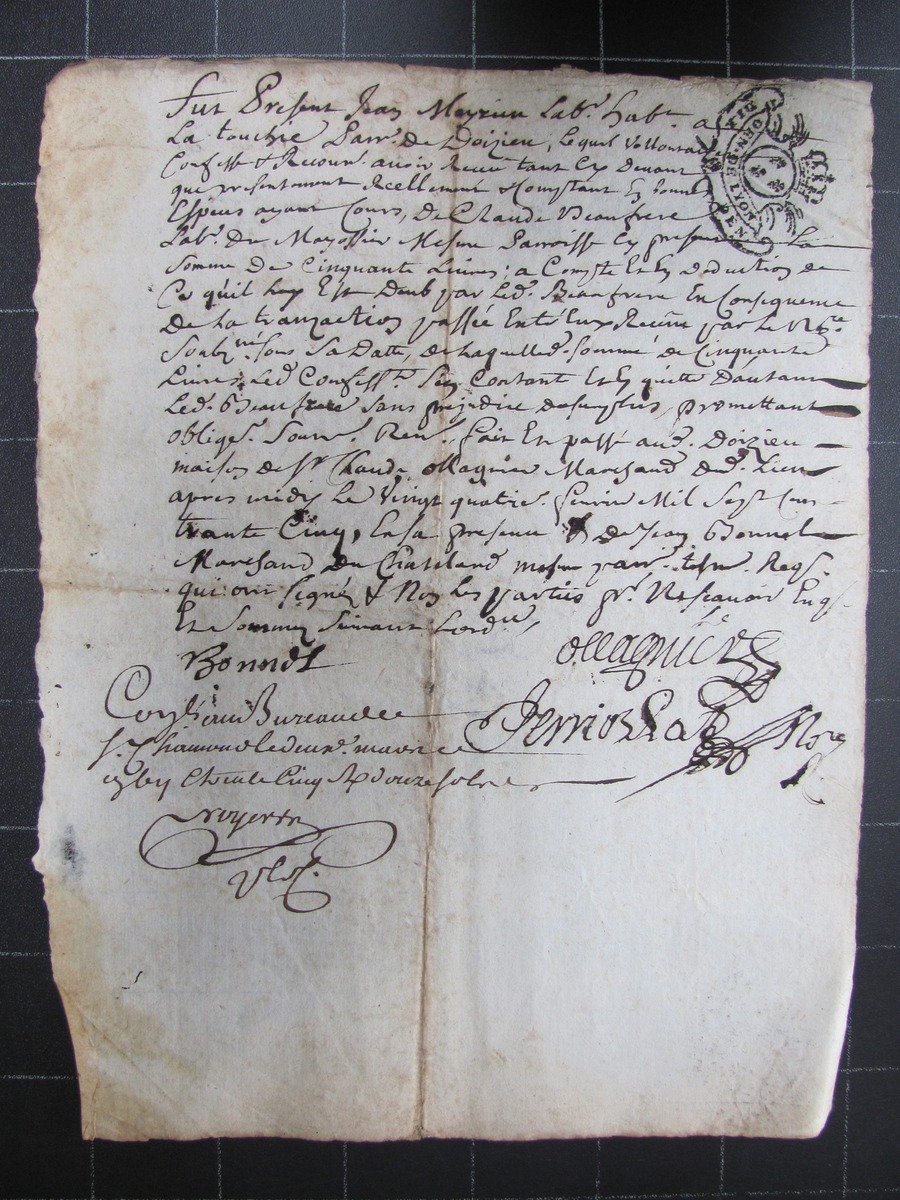 Fut Present Jean Meyrieu Labr. habt. a
La touchre Parr. de Doizieu, Lequel Vollontaire
Confesse & Reconu. avoir Receu tant Cy Devant
que presentement Reellement & Comptant En bonnes
Especes ayant Cours, de Claude Beaufrere
Labr. Du Mayossier Mesme Parroisse Cy present La
somme De Cinquante Livres, a Compte Et En deduction de
Ce quil luy Est Deub par Led. Beaufrere En Consequence
De La tranzaction passée Entr'Eux Receüe par Le Nre.
Soubzné. sous Sa Datte, de Laquelle d. somme de Cinquante
Livres Led. Confesst. Sen Contant Et En quitte Dautant
Led. Beaufrere sans prejudice du surplus, promettant
oblige. Soum. Ren. fait Et passé aud. Doizieu
maison de Sr. Claude ollagnier Marchand dud. Lieu
apres midy Le Vingt quatre. fevrier Mil Sept Cens
trante Cinq, En sa presence & de Jean Bonnet
Marchand du Chateland mesme parr. tesm. Reqs.
qui ont signés & Non Les parties pr. Ne scavoir Enqs.
Et Sommés Suivant Lord.
Bonnet
ollagnier
Conllé au Bureau de
St. Chamond le deux. mars
Reçu douze sols
noyerie
DIX DEN
GEN. DE LYON